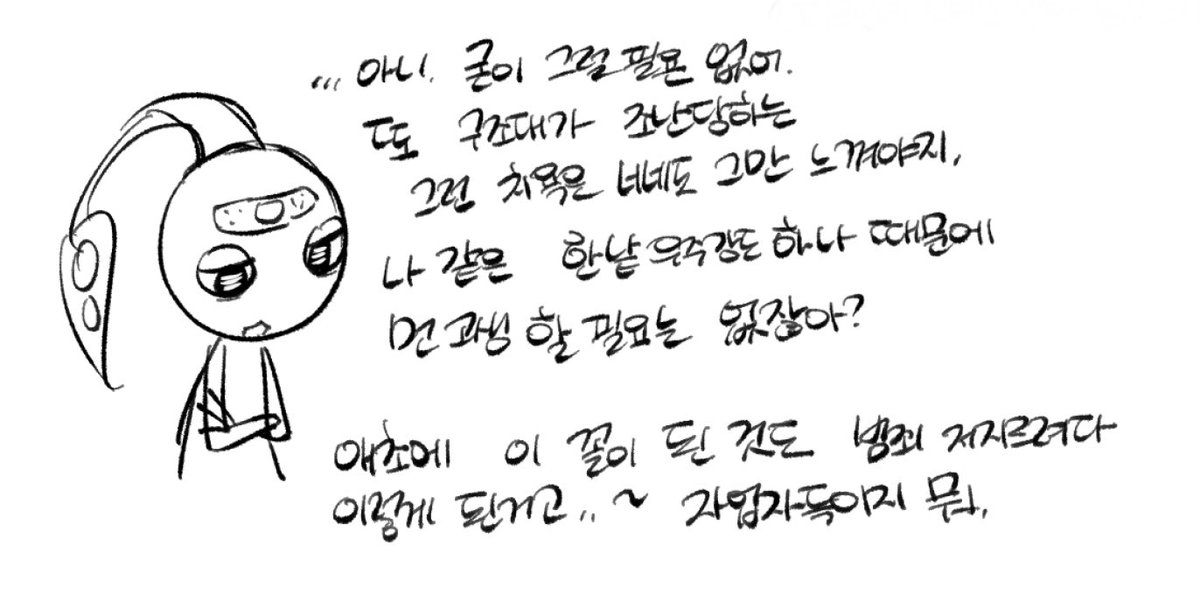 ... 아니. 굳이 그럴 필욘 없어.
또 구조대가 조난당하는
그런 치욕은 너네도 그만 느껴야지.
나 같은 한낱 우주강도 하나 때문에
먼 고생 할 필요는 없잖아?
애초에 이 꼴이 된 것도 범죄 저지르려다
이렇게 된거고..~ 자업자득이지 뭐.